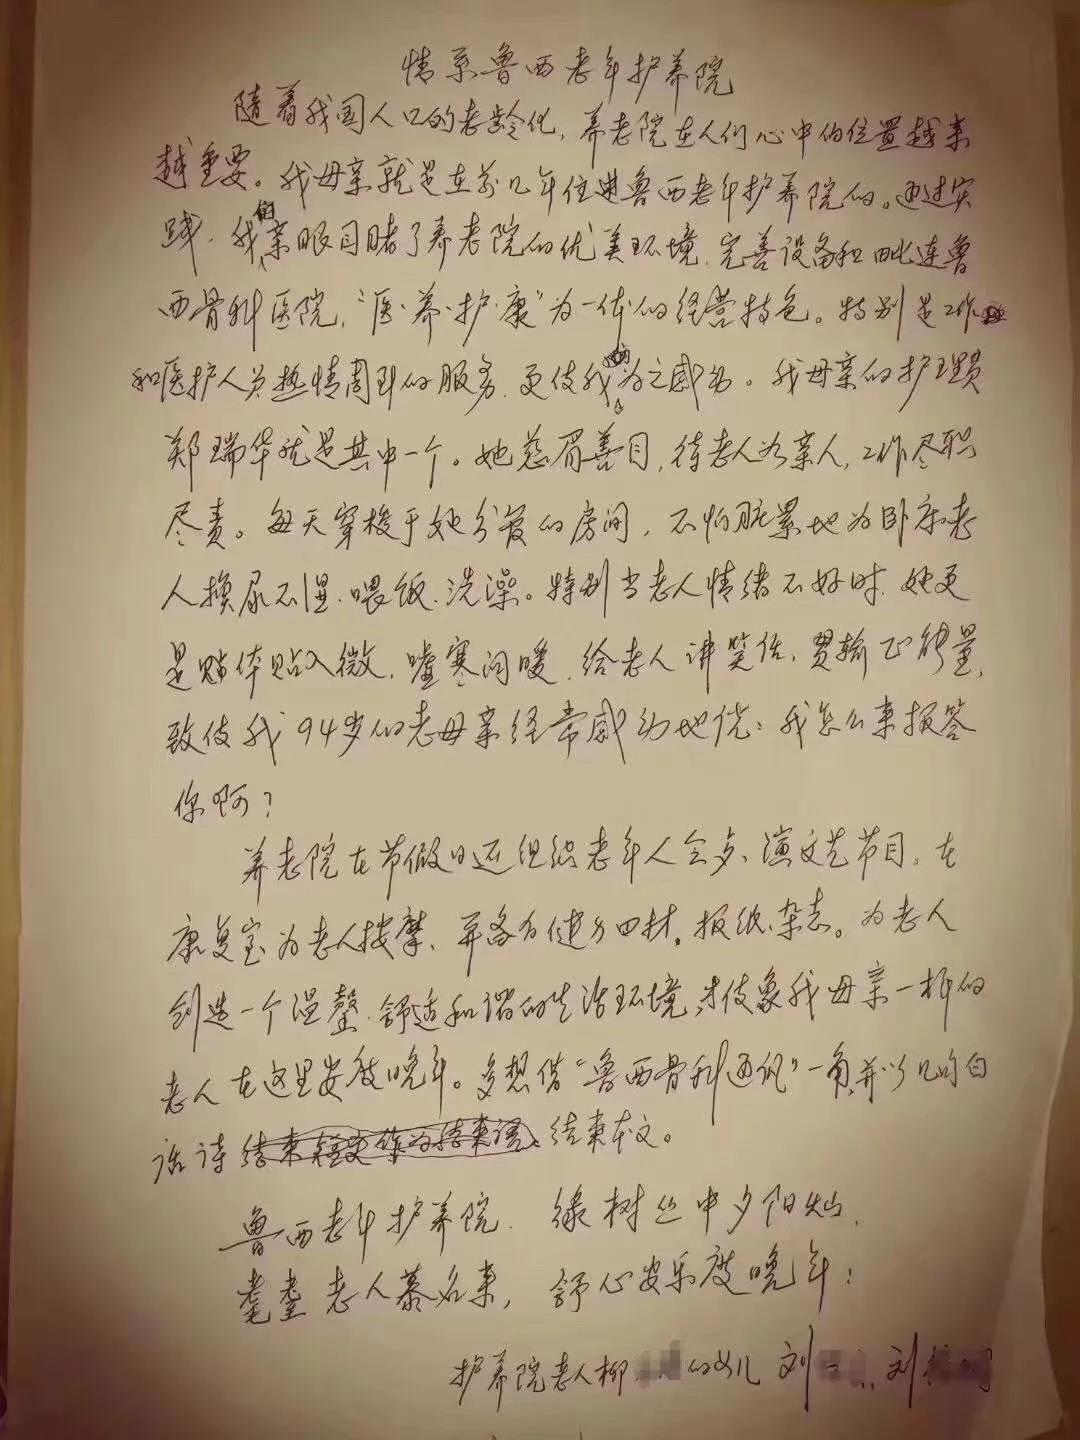 情系鲁西老年护养院
随着我国人口的老龄化，养老院在人们心中的位置越来
越重要。我母亲就是在前几年住进鲁西老年护养院的。通过实
践，我们亲眼目睹了养老院的优美环境、完善设备和毗连鲁
西骨科医院，“医·养·护·康”为一体的经营特色。特别是工作
和医护人员热情周到的服务，更使我们为之感动。我母亲的护理员
郑瑞华就是其中一个。她慈眉善目，待老人为亲人，工作尽职
尽责。每天穿梭于她分管的房间，不怕脏累地为卧床老
人换尿不湿、喂饭、洗澡。特别当老人情绪不好时，她更
是贴体贴入微，嘘寒问暖，给老人讲笑话，贯输正能量，
致使我94岁的老母亲经常感动地说：我怎么来报答
你啊？
养老院在节假日还组织老年人会夕、演文艺节目。在
康复室为老人按摩、并备有健身四材，报纸、杂志。为老人
创造一个温馨、舒适和谐的生活环境，才使象我母亲一样的
老人在这里安度晚年。多想借“鲁西骨科通讯”一角，并以几句白
话诗结束本文。
鲁西老年护养院，绿树丛中夕阳灿，
耄耋老人慕名来，舒心安乐度晚年！
护养院老人柳 的女儿 刘 刘